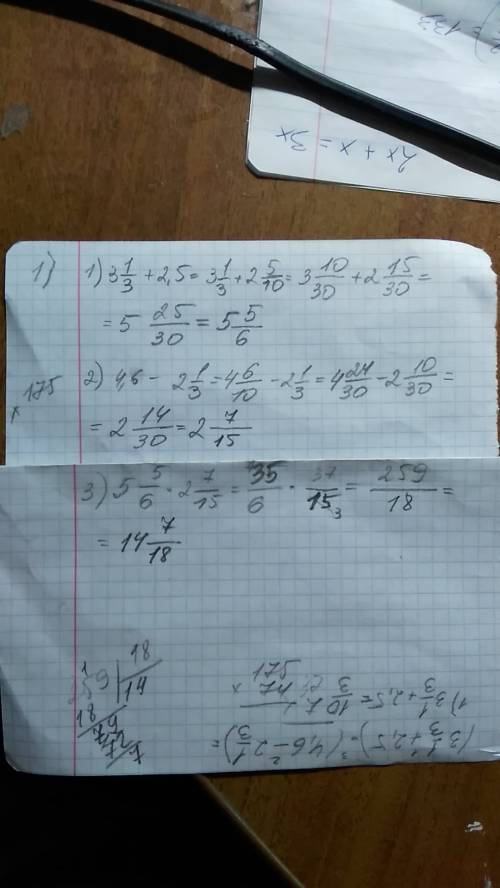 = 133
2x + x = 3x
1) 1) 3 1/3 + 2,5 = 3 1/3 + 2 5/10 = 3 10/30 + 2 15/30 =
= 5 25/30 = 5 5/6
× 175
2) 4,6 - 2 1/3 = 4 6/10 - 2 1/3 = 4 24/30 - 2 10/30 =
= 2 14/30 = 2 7/15
3) 5 5/6 · 2 7/15 = 35/6 · 37/15 3 = 259/18 =
= 14 7/18
259 | 18
18 | 14
79
72
7
(3 1/3 + 2,5) · (4,6 - 2 1/3) =
1) 3 1/3 + 2,5 = 10/3
175
× 74